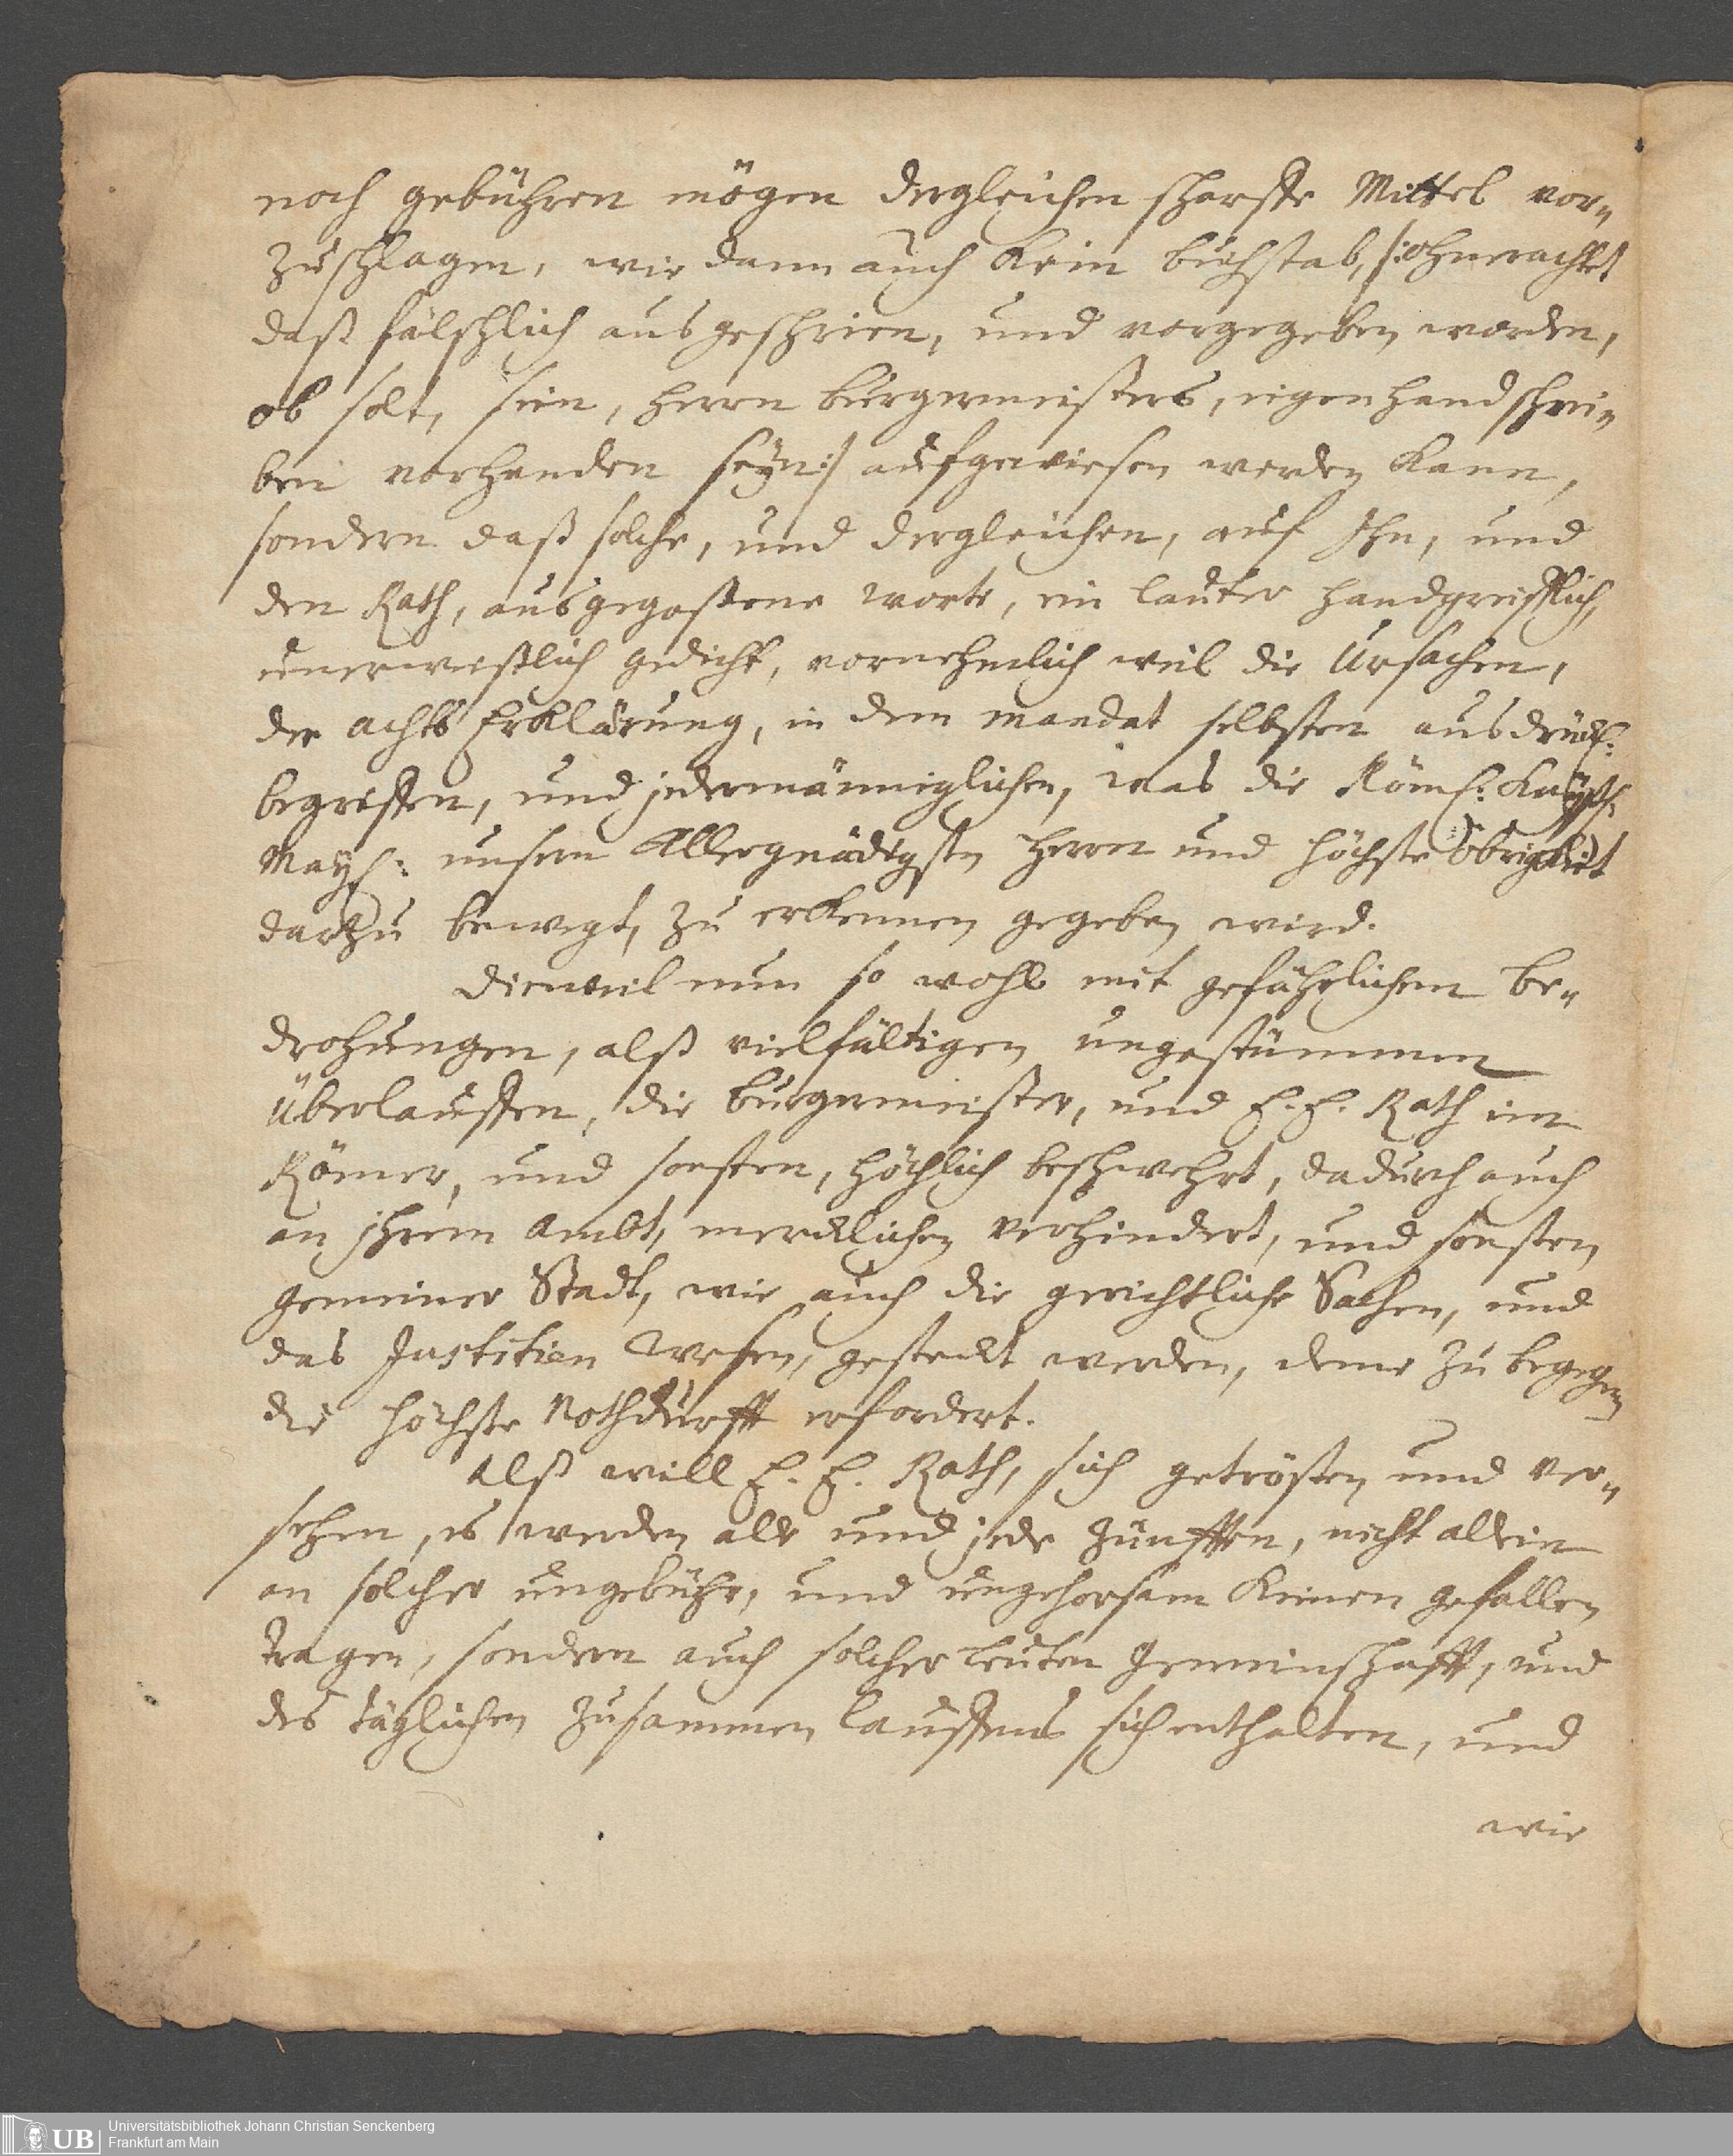 noch gebühren mögen dergleichen scharffe Mittel vor„
zuschlagen, wie dann auch kein buchstab, /:ohnerachtet
daß fälschlich ausgeschrien, und vorgegeben worden,
ob solt, sein, Herrn burgermeisters, eigen handschrei„
ben vorhanden seyn:/ aufgewiesen werden kann,
sondern daß solche, und dergleichen, auf Ihn, und
den Rath, ausgegoßene worte, ein lauter handgreifflich,
unerweißlich gedicht, vornehmlich weil die Ursachen,
der achts Erklärung, in dem mandat selbsten ausdrückl:
begriffen, und jedermänniglichen, was die Röml: Kayßl:
Mayl: unsern Allergnädigsten Herrn und höchste Obrigkeit
dartzu bewegt, zu erkennen gegeben wird.
Dieweil nun so wohl mit gefährlichen be„
drohungen, alß vielfältigen ungestümmen
Überlauffen, die burgermeister, und E. E. Rath im
Römer, und sonsten, höchlich beschwehrt, dadurch auch
an ihrem Ambt, mercklichen verhindert, und sonsten
gemeiner Stadt, wie auch die gerichtliche Sachen, und
das Justitien Wesen, gesteckt werden, deme zu begegen
die höchste Nothdurfft erfordert.
Alß will E. E. Rath, sich getrösten und ver„
sehen, es werden alle und jede Zünfften, nicht allein
an solcher ungebühr, und ungehorsam keinen gefallen
tragen, sondern auch solcher leuten Gemeinschafft, und
des täglichen zusammen lauffens sich enthalten, und
wie
UB
Universitätsbibliothek Johann Christian Senckenberg
Frankfurt am Main